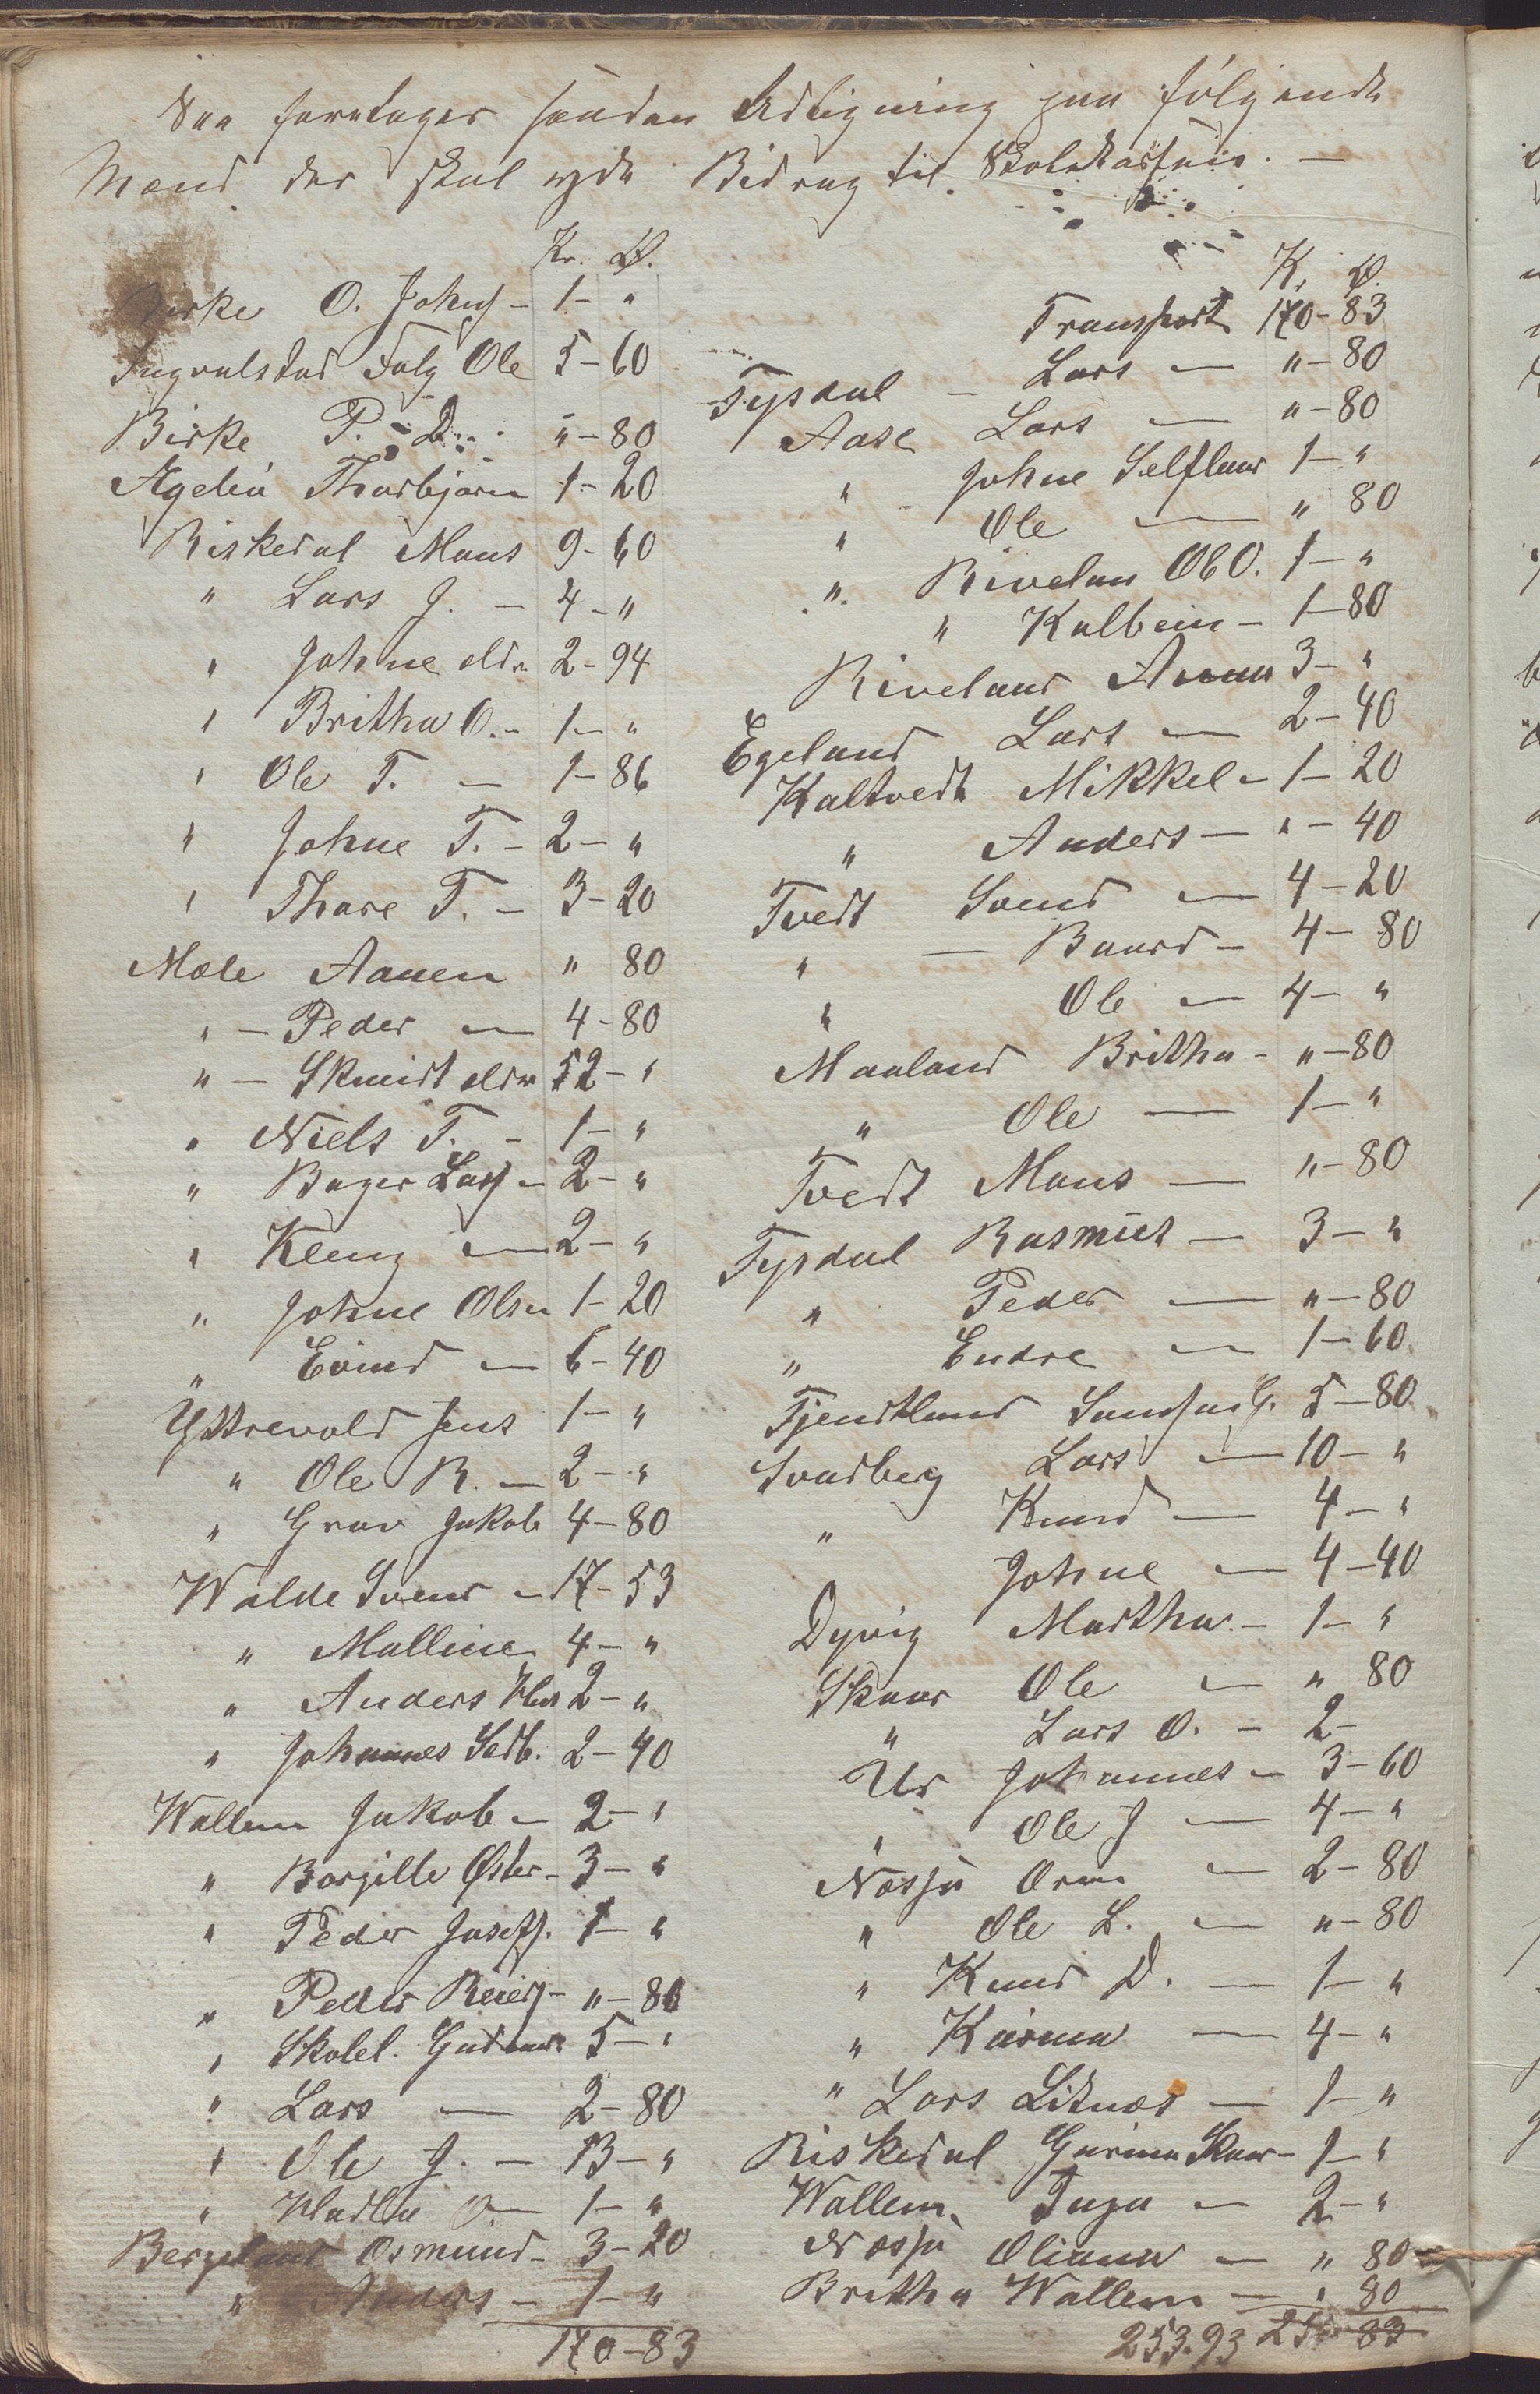 Saa foretages saadan Udligning paa følgende
Mænd der skal yde Bidrag til Skolekassen. —
Kr. Ø.
Birke O. Johns – 1 – "
Ingvalstad Falg Ole 5 – 60
Birke P. D. " – 80
Thorbjørn 1 – 20
Riskedal Mans 9 – 60
" Lars J. – 4 – "
" Johne eldr. 2 – 94
" Britha O. – 1 – "
" Ole T. — 1 – 86
" Johne T. – 2 – "
" Thore T. – 3 – 20
Mæle Aanen " 80
" – Peder — 4 – 80
" – Skmidt eldr 52 – "
" Niels T. – 1 – "
" Lars – 2 – "
" Kleng — 2 – "
" Johne Olsen 1 – 20
" Eivind — 6 – 40
Yttrevold Jens 1 – "
" Ole R. — 2 – "
" Grav Jakob 4 – 80
Walde Svend – 17 – 53
" Malline 4 – "
" Anders 2 – "
" Johannes Sedb. 2 – 40
Wallem Jakob – 2 – "
" Borgille Øster – 3 – "
" Peder Josefs. 1 – "
" Peder Reiers – " – 80
" Skolel. Gudmund 5 – "
" Lars — 2 – 80
" Ole J. – 13 – "
" 1 – "
Bergeland Osmund – 3 – 20
" Anders – 1 – "
170 – 83
Kr. Ø.
Transport 170 – 83
Tysdal – Lars — " – 80
Aase Lars — " – 80
" Johne 1 – "
" Ole — " 80
" Riveland Ole O. 1 – "
" Kalbein – 1 – 80
Riveland Anna 3 – "
Egeland Lars — 2 – 40
Kaltvedt Mikkel – 1 – 20
" Anders — " – 40
Tvedt Svend — 4 – 20
" — Baard – 4 – 80
" Ole — 4 – "
Maaland Britha – " – 80
" Ole — 1 – "
Tvedt Mans — " – 80
Tysdal Rasmus — 3 – "
" Peder — " – 80
" Endre — 1 – 60
Fjendtland G. 5 – 80
Svadberg Lars — 10 – "
" Knud — 4 – "
Johne — 4 – 40
Dyvig Martha – 1 – "
Skaar Ole — " 80
" Lars O. – 2 –
Ur Johannes – 3 – 60
" Ole J — 4 – "
Næsja Orm — 2 – 80
" Ole L. — " – 80
" Knud D. — 1 – "
" Karina — 4 – "
" Lars Litnæs — 1 – "
Riskedal Gurina Skaar – 1 – "
Wallem Inga — 2 – "
Næsja Oliana — " 80
Britha Wallem — " 80
253.93 83